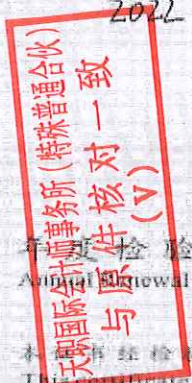 2022
天职国际会计师事务所（特殊普通合伙）
与原件核对一致
（V）
年度检验
Annual Renewal